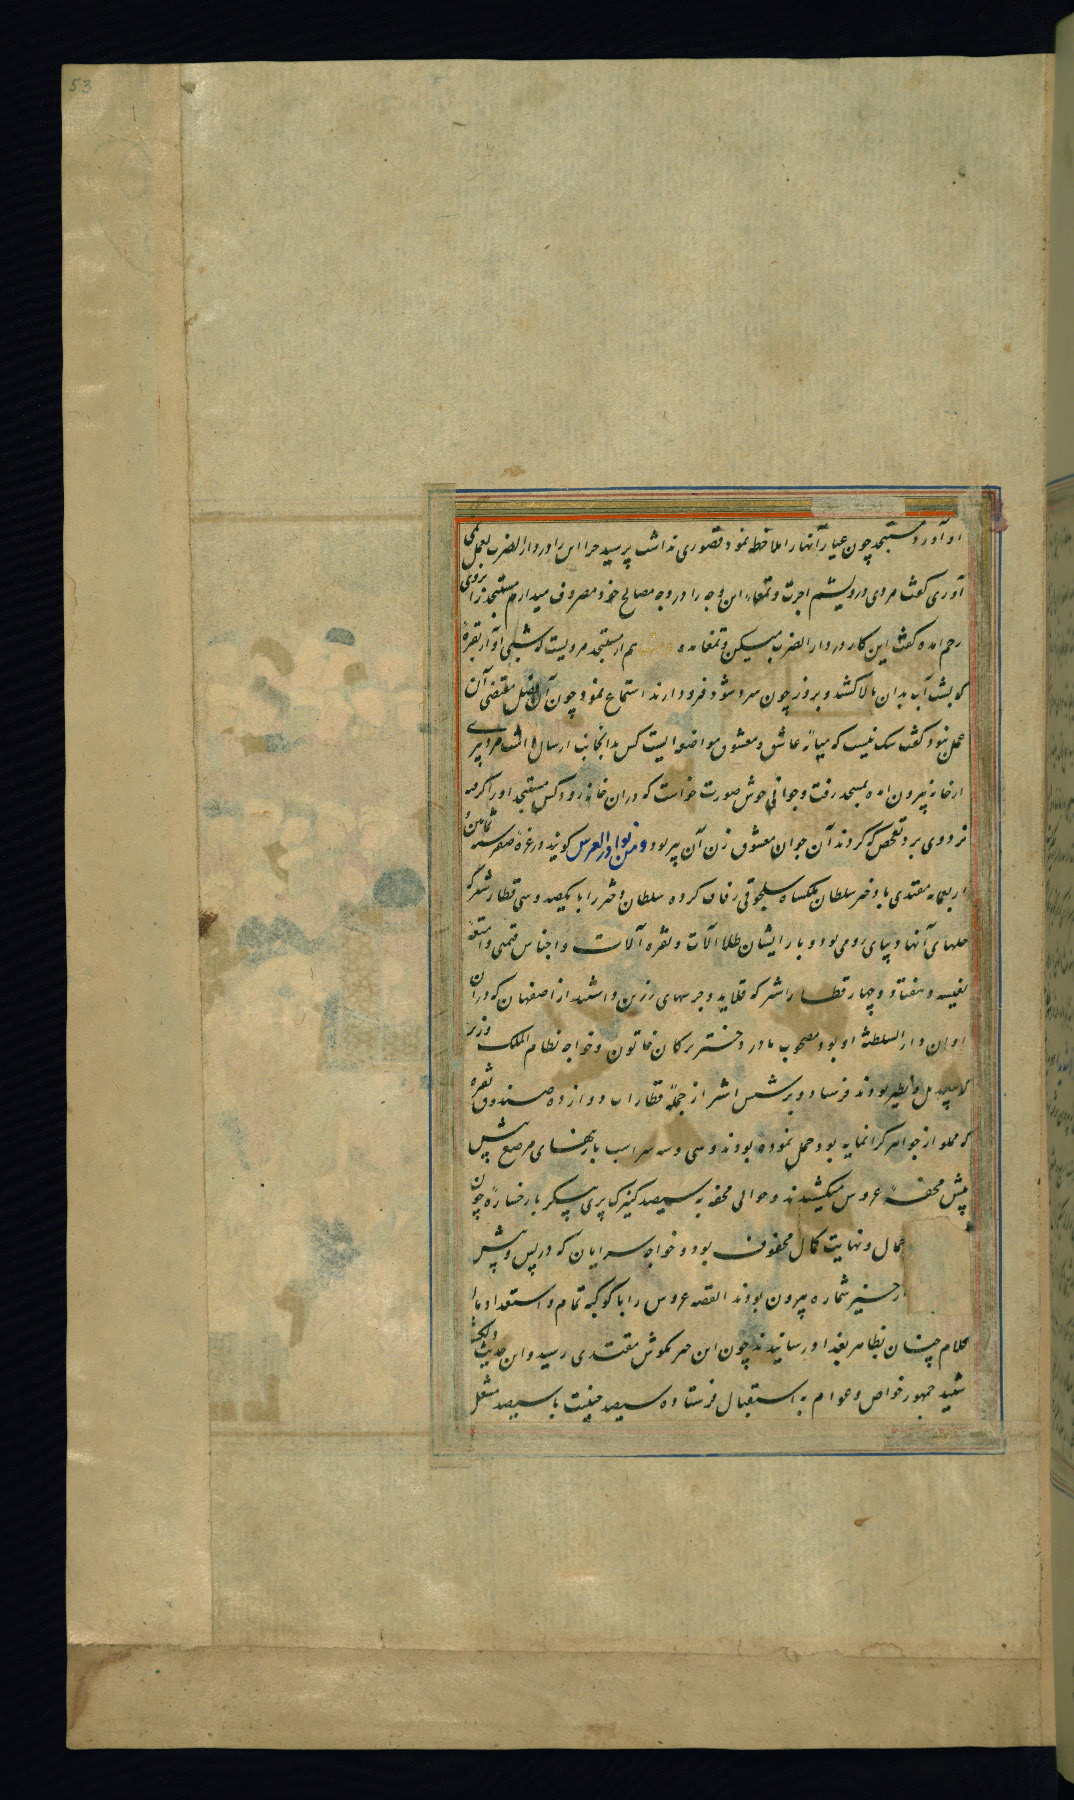 53
او آورد مستنجد چون عیار آنها را ملاحظه نمود قصوری نداشت پرسید چرا این را در دار الضرب بعمل نمی
آوری گفت مردی درویشم اجرت و تمغاء این وجه را در وجه مصالح خود مصروف میدارم مستنجد را بروی
رحم آمده گفت این کار در دار الضرب میکن و تمغا مده و هم از مستنجد مرویست که شبی آواز بقره
که بشب آب بدان بالا کشند و بروز چون سرد شود فرود آرند استماع نمود چون آن فصل مقتضی آن
عمل نبود گفت شک نیست که میانه عاشق و معشوق مواضعه ایست کس بدانجانب ارسال داشت مرد پیری
از خانه بیرون آمده بمسجد رفت و جوانی خوش صورت خواست که در آن خانه رود کس مستنجد او را گرفته
نزد وی برد تفحص که کردند آن جوان معشوق زن آن پیر بود و من نوادر العرس گویند در غره صفر سنه ثمانین و
اربعمایه مقتدی با دختر سلطان ملکشاه سلجوقی زفاف کرده سلطان دختر را با یکصد و سی قطار شتر که
جلهای آنها دیبای رومی بود و بار ایشان طلا آلات و نقره آلات و اجناس قیمتی و امتعه
نفیسه و هفتاد و چهار قطار استر که قلاید و جرسهای زرین داشتند از اصفهان که در آن
اوان دار السلطنه او بود مصحوب مادر دختر ترکان خاتون و خواجه نظام الملک وزیر
که بیبدیل و نظیر بودند فرستاد و بر شش استر از جمله قطارات دوازده صندوق نقره
که مملو از جواهر گرانمایه بود حمل نموده بودند و سی و سه سر اسب با زینهای مرصع پیش
پیش محفه عروس میکشیدند و حوالی محفه به سیصد کنیزک پری پیکر با رخساره چون
جمال و نهایت کمال محفوف بود و خواجه سرایان که در پس و پیش
از حیز شماره بیرون بودند القصه عروس را با کوکبه تمام و استعداد مالا
کلام چنان بظاهر بغداد رسانیدند چون این خبر بگوش مقتدی رسید و این حدیث دلکش
شنید جمهور خواص و عوام به استقبال فرستاده سیصد جنیبت با سیصد مشعل